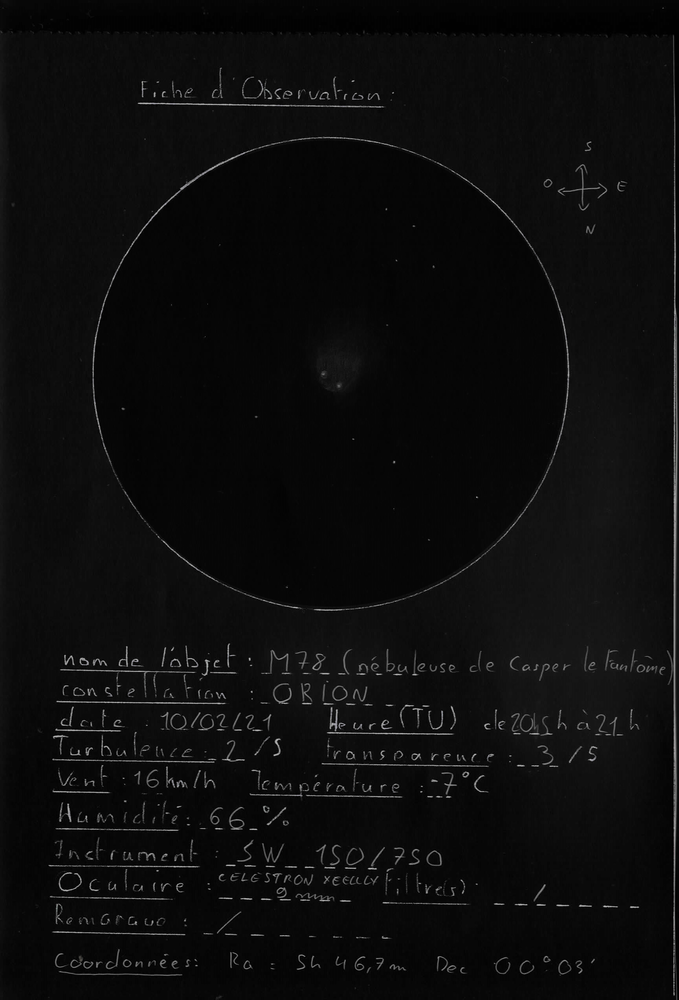 Fiche d'Observation:
S
O E
N
nom de l'objet : M78 (nébuleuse de Casper le Fantôme)
constellation : ORION
date : 10/02/21 Heure (TU) de h à 21 h
Turbulence : 2 /5 transparence : 3 /5
Vent : 16 km/h Température : -7°C
Humidité : 66 %
Instrument : SW 150/750
Oculaire : CELESTRON XEELLY Filtre(s) : /
9 mm
Remarque : /
Coordonnées : Ra : 5h 46,7m Dec 00°03'